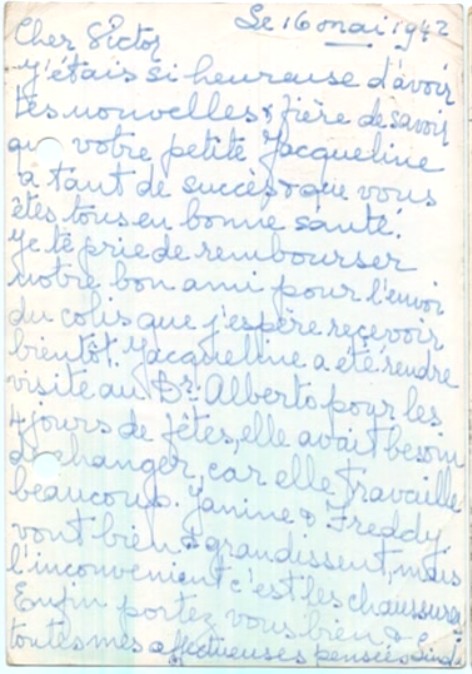 Le 16 mai 1942
Cher Victor
J'étais si heureuse d'avoir
tes nouvelles & fière de savoir
que votre petite Jacqueline
a tant de succès & que vous
êtes tous en bonne santé.
Je te prie de rembourser
notre bon ami pour l'envoi
du colis que j'espère reçevoir
bientôt. Jacqueline a été rendre
visite au Dr. Alberto pour les
4 jours de fêtes, elle avait besoin
de changer, car elle travaille
beaucoup. Janine & Freddy
vont bien & grandissent, mais
l'inconvenient c'est les chaussures
Enfin portez vous bien &
toutes mes affectueuses pensées